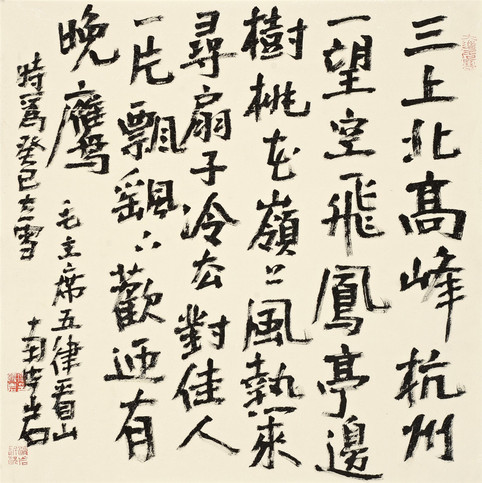 三上北高峰杭州
一望空飛鳳亭邊
樹桃花嶺上風熱來
尋扇子冷去對佳人
一片飄颻下歡迎有
晚鷹
毛主席五律看山
時為癸巳大雪